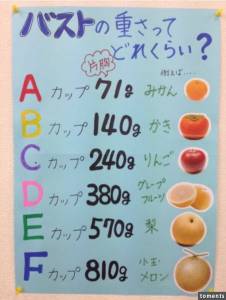 バストの重さって
どれくらい?
片胸
例えば....
A カップ 71g みかん
B カップ 140g かき
C カップ 240g りんご
D カップ 380g グレープフルーツ
E カップ 570g 梨
F カップ 810g 小玉メロン
toments